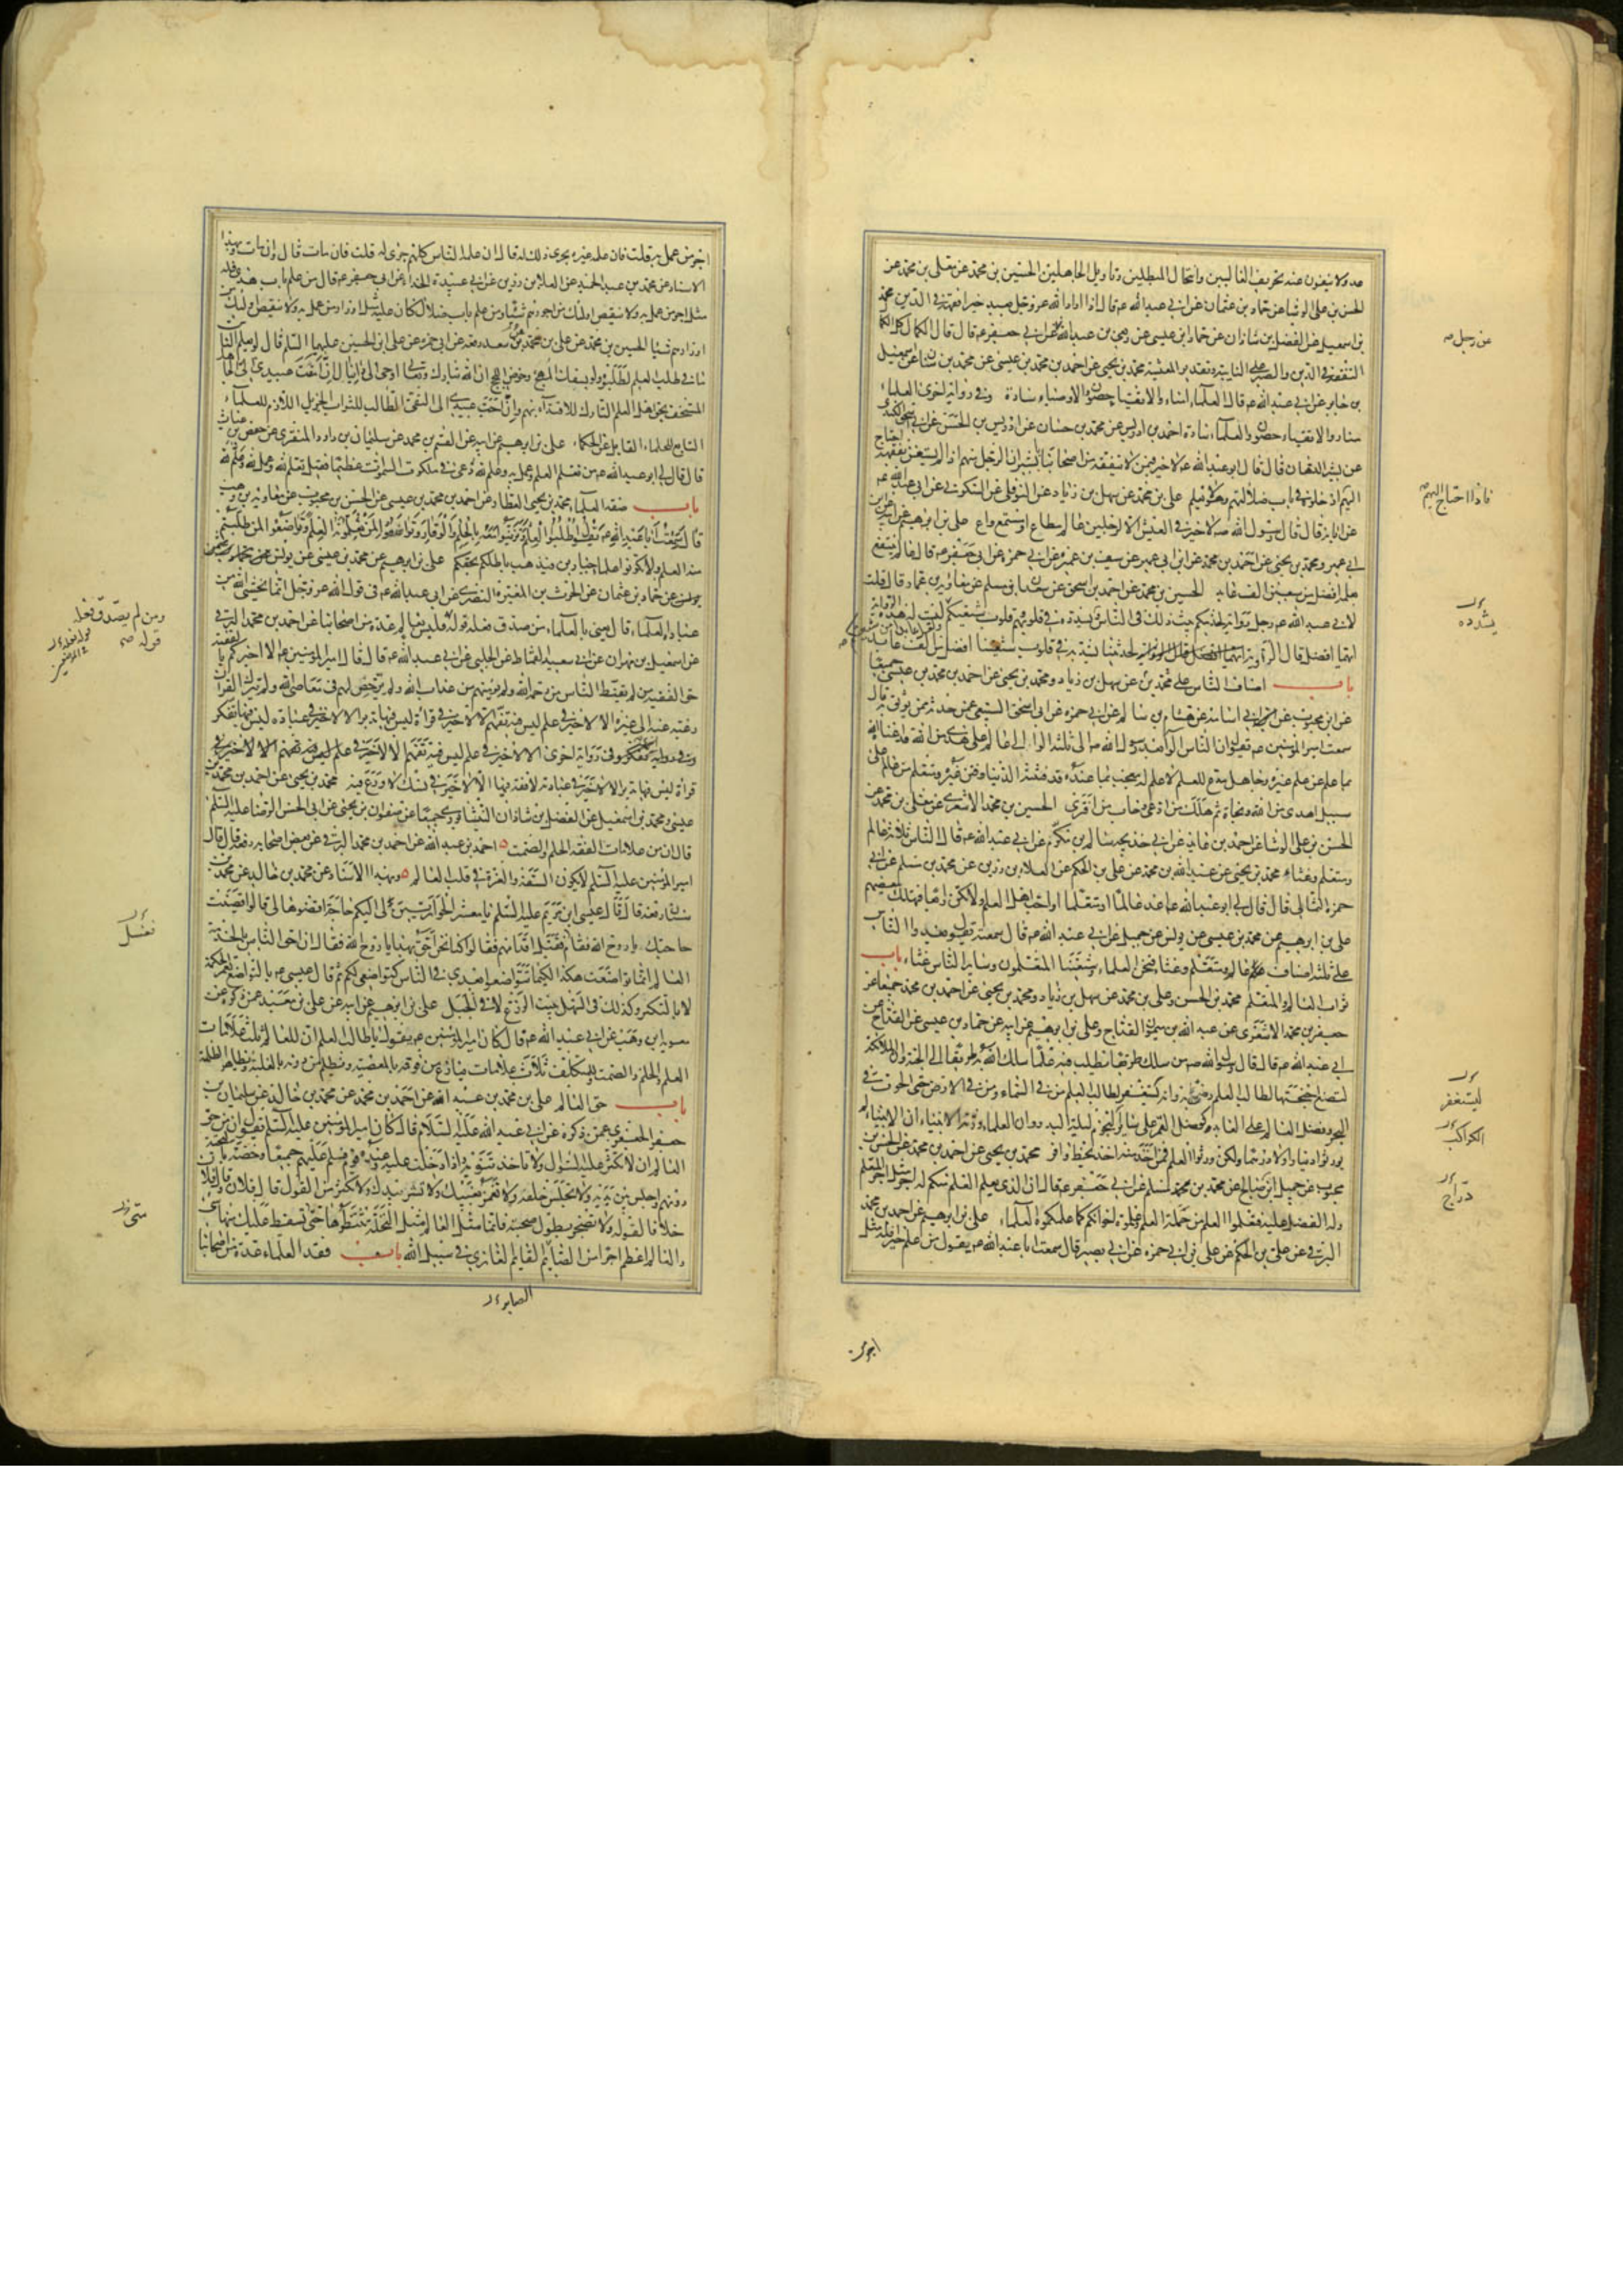 عدولا ينفون عنه تحريف الغالين وانتحال المبطلين وتاويل الجاهلين الحسين بن محمد عن معلى بن محمد عن
الحسن بن على الوشا عن حماد بن عثمان عن ابى عبد الله ع قال اذا اراد الله عز وجل بعبد خيرا فقهه فى الدين محمد
بن اسمعيل عن الفضل بن شاذان عن حماد بن عيسى عن ربعى بن عبد الله عن ابى جعفر ع قال قال الكمال كل الكمال
التفقه فى الدين والصبر على النايبة وتقدير المعيشة محمد بن يحيى عن احمد بن محمد بن عيسى عن محمد بن سنان عن اسمعيل
بن جابر عن ابى عبد الله ع قال العلماء امناء والاتقياء حصون والاوصياء سادة وفى رواية اخرى العلماء
منار والاتقياء حصون والعلماء سادة احمد بن ادريس عن محمد بن حسان عن ادريس بن الحسن عن ابى اسحق الكندى
عن بشير الدهان قال قال ابو عبد الله ع لا خير فيمن لا يتفقه من اصحابنا يا بشير ان الرجل منهم اذا لم يستغن بفقهه احتاج
اليهم ادخلوه فى باب ضلالتهم وهو لا يعلم على بن محمد عن سهل بن زياد عن النوفلى عن السكونى عن ابى عبد الله ع
عن ابائه قال قال رسول الله ص لا خير فى العيش الا لرجلين عالم مطاع او مستمع واع على بن ابرهيم عن ابيه عن ابن
ابى عمير ومحمد بن يحيى عن احمد بن محمد عن ابن ابى عمير عن سيف بن عميرة عن ابى حمزة عن ابى جعفر ع قال عالم ينتفع
بعلمه افضل من سبعين الف عابد الحسين بن محمد عن احمد بن اسحق عن سعدان بن مسلم عن معاوية بن عمار قال قلت
لابى عبد الله ع رجل راوية لحديثكم يبث ذلك فى الناس ويشدده فى قلوبهم وقلوب شيعتكم
ايهما افضل قال الراوية لحديثنا يشد به فى قلوب شيعتنا افضل من الف عابد
باب اصناف الناس على بن محمد عن سهل بن زياد ومحمد بن يحيى عن احمد بن محمد بن عيسى جميعا
عن ابن محبوب عن ابى اسامة عن هشام بن سالم عن ابى حمزة عن ابى اسحق السبيعى عمن حدثه ممن يوثق به قال
سمعت امير المؤمنين ع يقول ان الناس الوا بعد رسول الله ص الى ثلثة الوا الى عالم على هدى من الله قد اغناه الله
بما علم عن علم غيره وجاهل مدع للعلم لا علم له معجب بما عنده قد فتنته الدنيا وفتن غيره ومتعلم من عالم على
سبيل هدى من الله ونجاة ثم هلك من ادعى وخاب من افترى الحسين بن محمد الاشعرى عن معلى بن محمد عن
الحسن بن على الوشا عن احمد بن عايذ عن ابى خديجة سالم بن مكرم عن ابى عبد الله ع قال الناس ثلاثة عالم
ومتعلم وغثاء محمد بن يحيى عن عبد الله بن محمد عن على بن الحكم عن العلاء بن رزين عن محمد بن مسلم عن ابى
حمزة الثمالى قال قال لى ابو عبد الله ع اغد عالما او متعلما او احب اهل العلم ولا تكن رابعا فتهلك ببغضهم
على بن ابرهيم عن محمد بن عيسى عن يونس عن جميل عن ابى عبد الله ع قال سمعته يقول يغدوا الناس
على ثلثة اصناف عالم ومتعلم وغثاء فنحن العلماء وشيعتنا المتعلمون وساير الناس غثاء باب
ثواب العالم والمتعلم محمد بن الحسن وعلى بن محمد عن سهل بن زياد ومحمد بن يحيى عن احمد بن محمد جميعا عن
جعفر بن محمد الاشعرى عن عبد الله بن ميمون القداح وعلى بن ابرهيم عن ابيه عن حماد بن عيسى عن القداح عن
ابى عبد الله ع قال قال رسول الله ص من سلك طريقا يطلب فيه علما سلك الله به طريقا الى الجنة وان الملائكة
لتضع اجنحتها لطالب العلم رضى به وانه يستغفر لطالب العلم من فى السماء ومن فى الارض حتى الحوت فى
البحر وفضل العالم على العابد كفضل القمر على ساير النجوم ليلة البدر وان العلماء ورثة الانبياء ان الانبياء لم
يورثوا دينارا ولا درهما ولكن ورثوا العلم فمن اخذ منه اخذ بحظ وافر محمد بن يحيى عن احمد بن محمد عن الحسن بن
محبوب عن جميل بن صالح عن محمد بن مسلم عن ابى جعفر ع قال ان الذى يعلم العلم منكم له اجر مثل اجر المتعلم
وله الفضل عليه فتعلموا العلم من حملة العلم وعلموه اخوانكم كما علمكموه العلماء على بن ابرهيم عن احمد بن محمد
البرقى عن على بن الحكم عن على بن ابى حمزة عن ابى بصير قال سمعت ابا عبد الله ع يقول من علم خيرا فله مثل
عن رجل صه
فاذا احتاج اليهم صه
يشدده
ليستغفر
الكواكب
درّاج
اجر من
اجر من عمل به قلت فان علمه غيره يجرى ذلك له قال ان علمه الناس كلهم جرى له قلت فان مات قال وان مات وبهذا
الاسناد عن محمد بن عبد الحميد عن العلاء بن رزين عن ابى عبيدة الحذاء عن ابى جعفر ع قال من علم باب هدى فله
مثل اجر من عمل به ولا ينقص اولئك من اجورهم شيئا ومن علم باب ضلال كان عليه مثل اوزار من عمل به ولا ينقص اولئك من
اوزارهم شيئا الحسين بن محمد عن على بن محمد بن سعد رفعه عن ابى حمزة عن على ابن الحسين عليهما السلم قال لو يعلم الناس
ما فى طلب العلم لطلبوه ولو بسفك المهج وخوض اللجج ان الله تبارك وتعالى اوحى الى دانيال ان امقت عبيدى الى الجاهل
المستخف بحق اهل العلم التارك للاقتداء بهم وان احب عبيدى الى التقى الطالب للثواب الجزيل اللازم للعلماء
التابع للحلماء القابل عن الحكماء على بن ابرهيم عن ابيه عن القسم بن محمد عن سليمان بن داود المنقرى عن حفص بن غياث
قال قال لى ابو عبد الله ع من تعلم العلم وعمل به وعلم لله دعى فى ملكوت السموات عظيما فقيل تعلم لله وعمل لله وعلم لله
باب صفة العلماء محمد بن يحيى العطار عن احمد بن محمد بن عيسى عن الحسن بن محبوب عن معاوية بن وهب
قال سمعت ابا عبد الله ع يقول اطلبوا العلم وتزينوا معه بالحلم والوقار وتواضعوا لمن تعلمونه العلم وتواضعوا لمن طلبتم
منه العلم ولا تكونوا علماء جبارين فيذهب باطلكم بحقكم على بن ابرهيم عن محمد بن عيسى عن يونس عن
حماد بن عثمان عن الحرث بن المغيرة النصرى عن ابى عبد الله ع فى قول الله عز وجل انما يخشى الله من
عباده العلماء قال يعنى بالعلماء من صدق فعله قوله فليس بعالم عدة من اصحابنا عن احمد بن محمد البرقى
عن اسمعيل بن مهران عن ابى سعيد القماط عن الحلبى عن ابى عبد الله ع قال قال امير المؤمنين ع الا اخبركم بالفقيه
حق الفقيه من لم يقنط الناس من رحمة الله ولم يؤمنهم من عذاب الله ولم يرخص لهم فى معاصى الله ولم يترك القران
رغبة عنه الى غيره الا لا خير فى علم ليس فيه تفهم الا لا خير فى قراءة ليس فيها تدبر الا لا خير فى عبادة ليس فيها تفكر
وفى رواية اخرى الا لا خير فى علم ليس فيه تفهم الا لا خير فى
قراءة ليس فيها تدبر الا لا خير فى عبادة لا فقه فيها الا لا خير فى نسك لا ورع فيه محمد بن يحيى عن احمد بن محمد بن
عيسى ومحمد بن اسمعيل عن الفضل بن شاذان النيشابورى جميعا عن صفوان بن يحيى عن ابى الحسن الرضا عليه السلم
قال ان من علامات الفقه الحلم والصمت احمد بن عبد الله عن احمد بن محمد البرقى عن بعض اصحابه رفعه قال قال
امير المؤمنين عليه السلم لا يكون السفه والغرة فى قلب العالم وبهذا الاسناد عن محمد بن خالد عن محمد بن
سنان رفعه قال قال عيسى ابن مريم عليه السلم يا معشر الحواريين لى اليكم حاجة اقضوها لى قالوا قضيت
حاجتك يا روح الله فقام فقبل اقدامهم فقالوا كنا نحن احق بهذا يا روح الله فقال ان احق الناس بالخدمة
العالم انما تواضعت هكذا لكيما تتواضعوا بعدى فى الناس كتواضعى لكم ثم قال عيسى ع بالتواضع تعمر الحكمة
لا بالتكبر وكذلك فى السهل ينبت الزرع لا فى الجبل على بن ابرهيم عن ابيه عن على بن معبد عمن ذكره عن
معوية بن وهب عن ابى عبد الله ع قال كان امير المؤمنين ع يقول يا طالب العلم ان للعالم ثلث علامات
العلم والحلم والصمت وللمتكلف ثلاث علامات ينازع من فوقه بالمعصية ويظلم من دونه بالغلبة ويظاهر الظلمة
باب حق العالم على بن محمد بن عبد الله عن احمد بن محمد عن محمد بن خالد عن سليمان بن
جعفر الجعفرى عمن ذكره عن ابى عبد الله عليه السلام قال كان امير المؤمنين عليه السلم يقول ان من حق
العالم ان لا تكثر عليه السؤال ولا تاخذ بثوبه واذا دخلت عليه وعنده قوم فسلم عليهم جميعا وخصه بالتحية
دونهم واجلس بين يديه ولا تجلس خلفه ولا تغمز بعينيك ولا تشر بيدك ولا تكثر من القول قال فلان وقال فلان
خلافا لقوله ولا تضجر بطول صحبته فانما مثل العالم مثل النخلة تنتظرها حتى تسقط عليك منها شئ
والعالم اعظم اجرا من الصايم القايم الغازى فى سبيل الله باب فقد العلماء عدة من اصحابنا
ومن لم يصدق فعله
قوله صه
تغسل
متى
الصابر